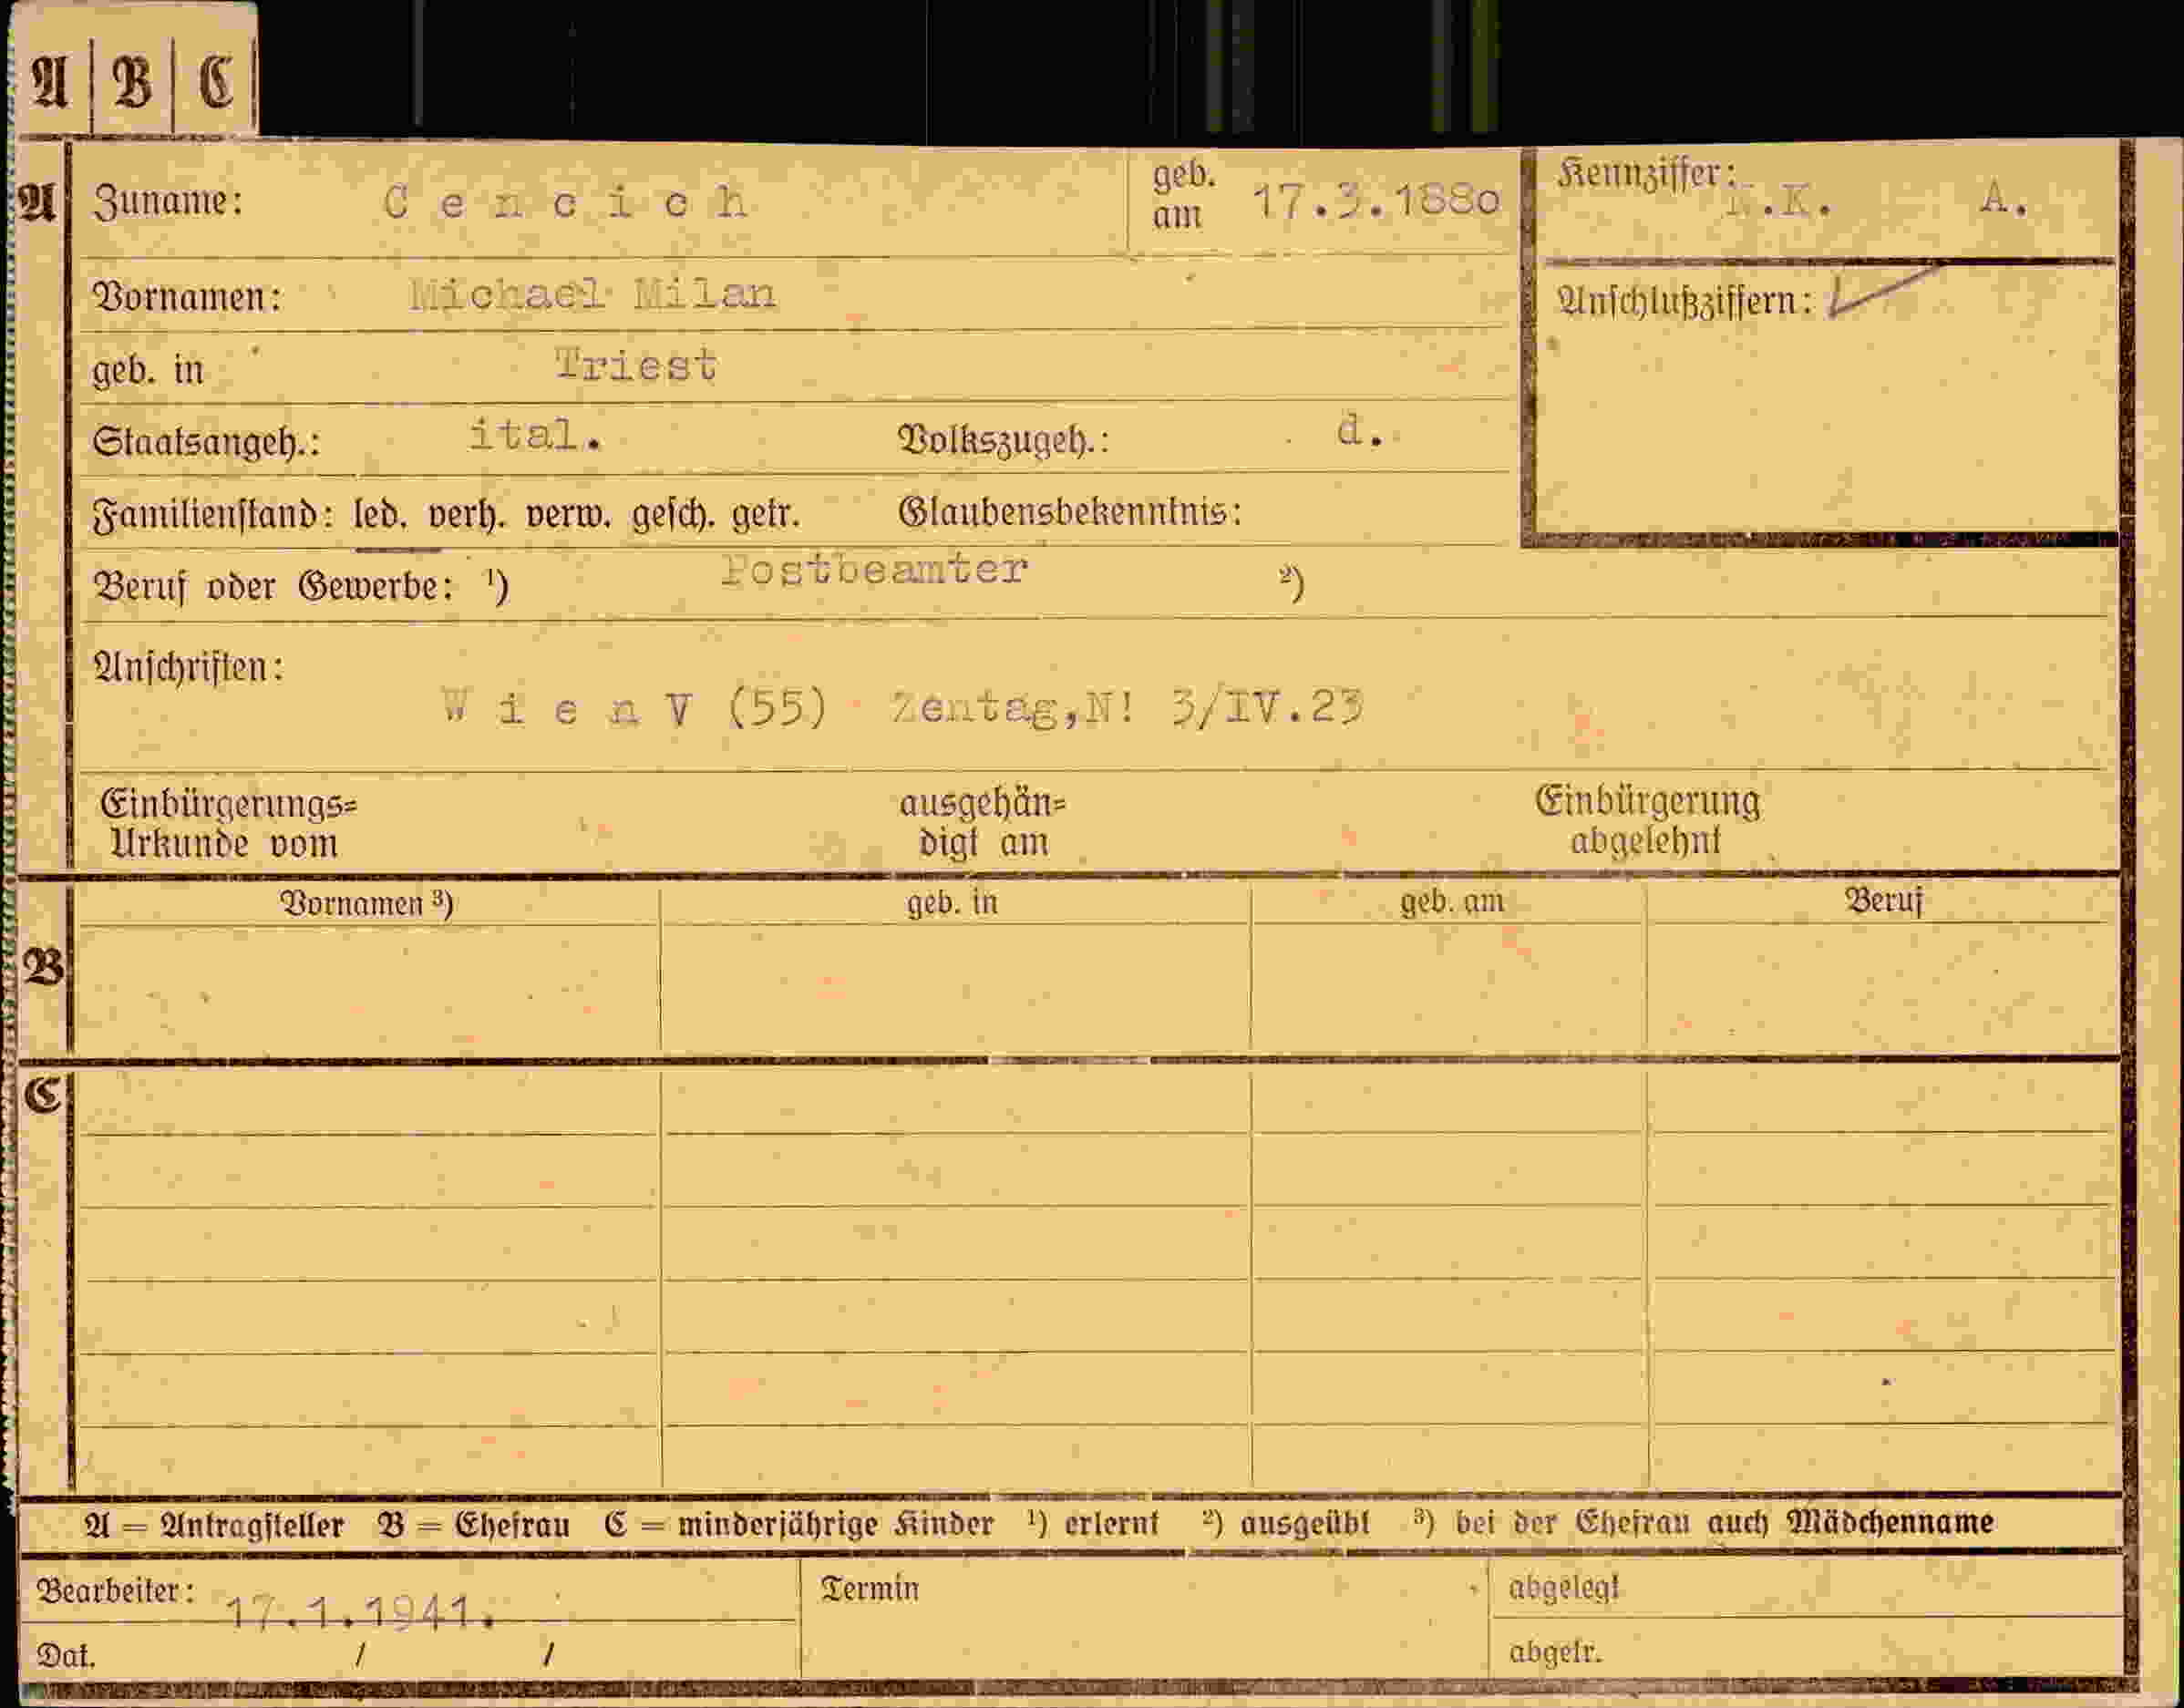 A | B | C
A Zuname: Cencich geb. am 17.3.1880 Kennziffer: .K. A.
Vornamen: Michael Milan Anschlußziffern:
geb. in Triest
Staatsangeh.: ital. Volkszugeh.: d.
Familienstand: led. verh. verw. gesch. getr. Glaubensbekenntnis:
Beruf oder Gewerbe: ¹) Postbeamter ²)
Anschriften:
Wien V (55) Zentag,N! 3/IV.23
Einbürgerungs= ausgehän= Einbürgerung
Urkunde vom digt am abgelehnt
Vornamen ³) geb. in geb. am Beruf
B
C
A = Antragsteller B = Ehefrau C = minderjährige Kinder ¹) erlernt ²) ausgeübt ³) bei der Ehefrau auch Mädchenname
Bearbeiter: 17.1.1941. Termin abgelegt
Dat. / / abgetr.